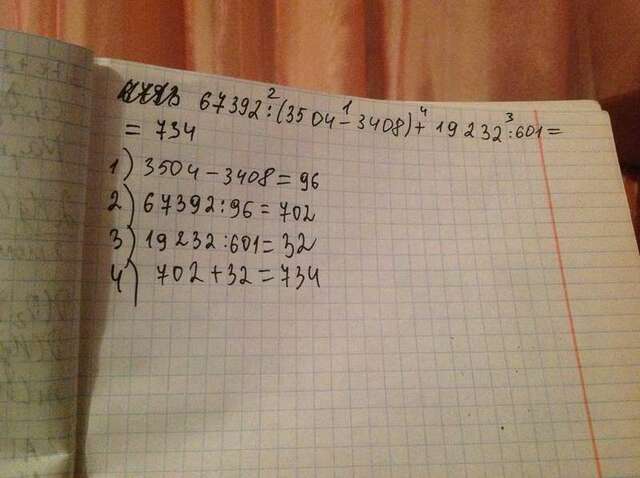 67392:(3504-3408)+19232:601=
= 734
1) 3504-3408=96
2) 67392:96=702
3) 19232:601=32
4) 702+32=734